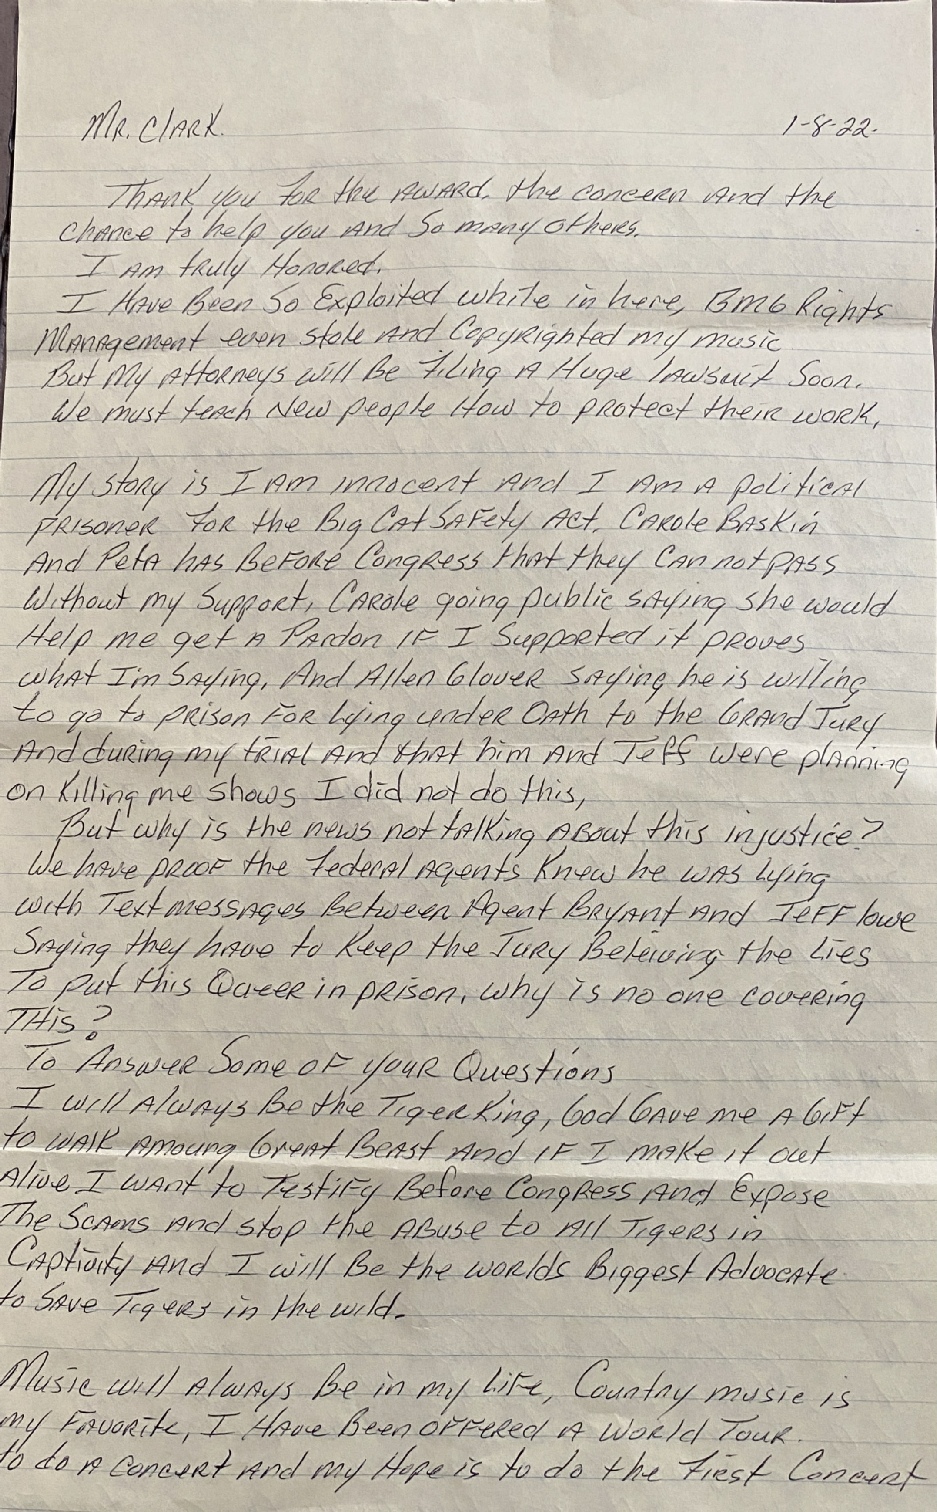 Mr. Clark. 1-8-22.
Thank you for the award, the concern and the
chance to help you and so many others.
I am truly Honored.
I Have Been So Exploited while in here, BMG Rights
Management even stole and Copyrighted my music
But My Attorneys will Be Filing A Huge lawsuit Soon.
We must teach New people How to protect their work,
My story is I am innocent and I am a political
prisoner for the Big Cat Safety Act, Carole Baskin
And Peta has Before Congress that they Can not pass
Without my Support, Carole going public saying she would
Help me get a Pardon if I Supported it proves
what I'm Saying, And Allen Glover saying he is willing
to go to prison for lying under Oath to the Grand Jury
And during my trial and that him and Jeff were planning
on Killing me shows I did not do this,
But why is the news not talking about this injustice?
We have proof the Federal Agents Knew he was lying
with Text messages Between Agent Bryant and Jeff lowe
Saying they have to Keep the Jury Beleiving the Lies
To put this Queer in prison, why is no one covering
THis?
To Answer Some of your Questions
I will Always Be the Tiger King, God Gave me a Gift
to walk Amoung Great Beast and if I make it out
Alive I want to Testify Before Congress and Expose
The Scams and stop the abuse to All Tigers in
Captivity and I will Be the worlds Biggest Advocate
to Save Tigers in the wild.
Music will Always Be in my Life, Country music is
my Favorite, I Have Been offered a World Tour.
to do a concert and my Hope is to do the First Concert